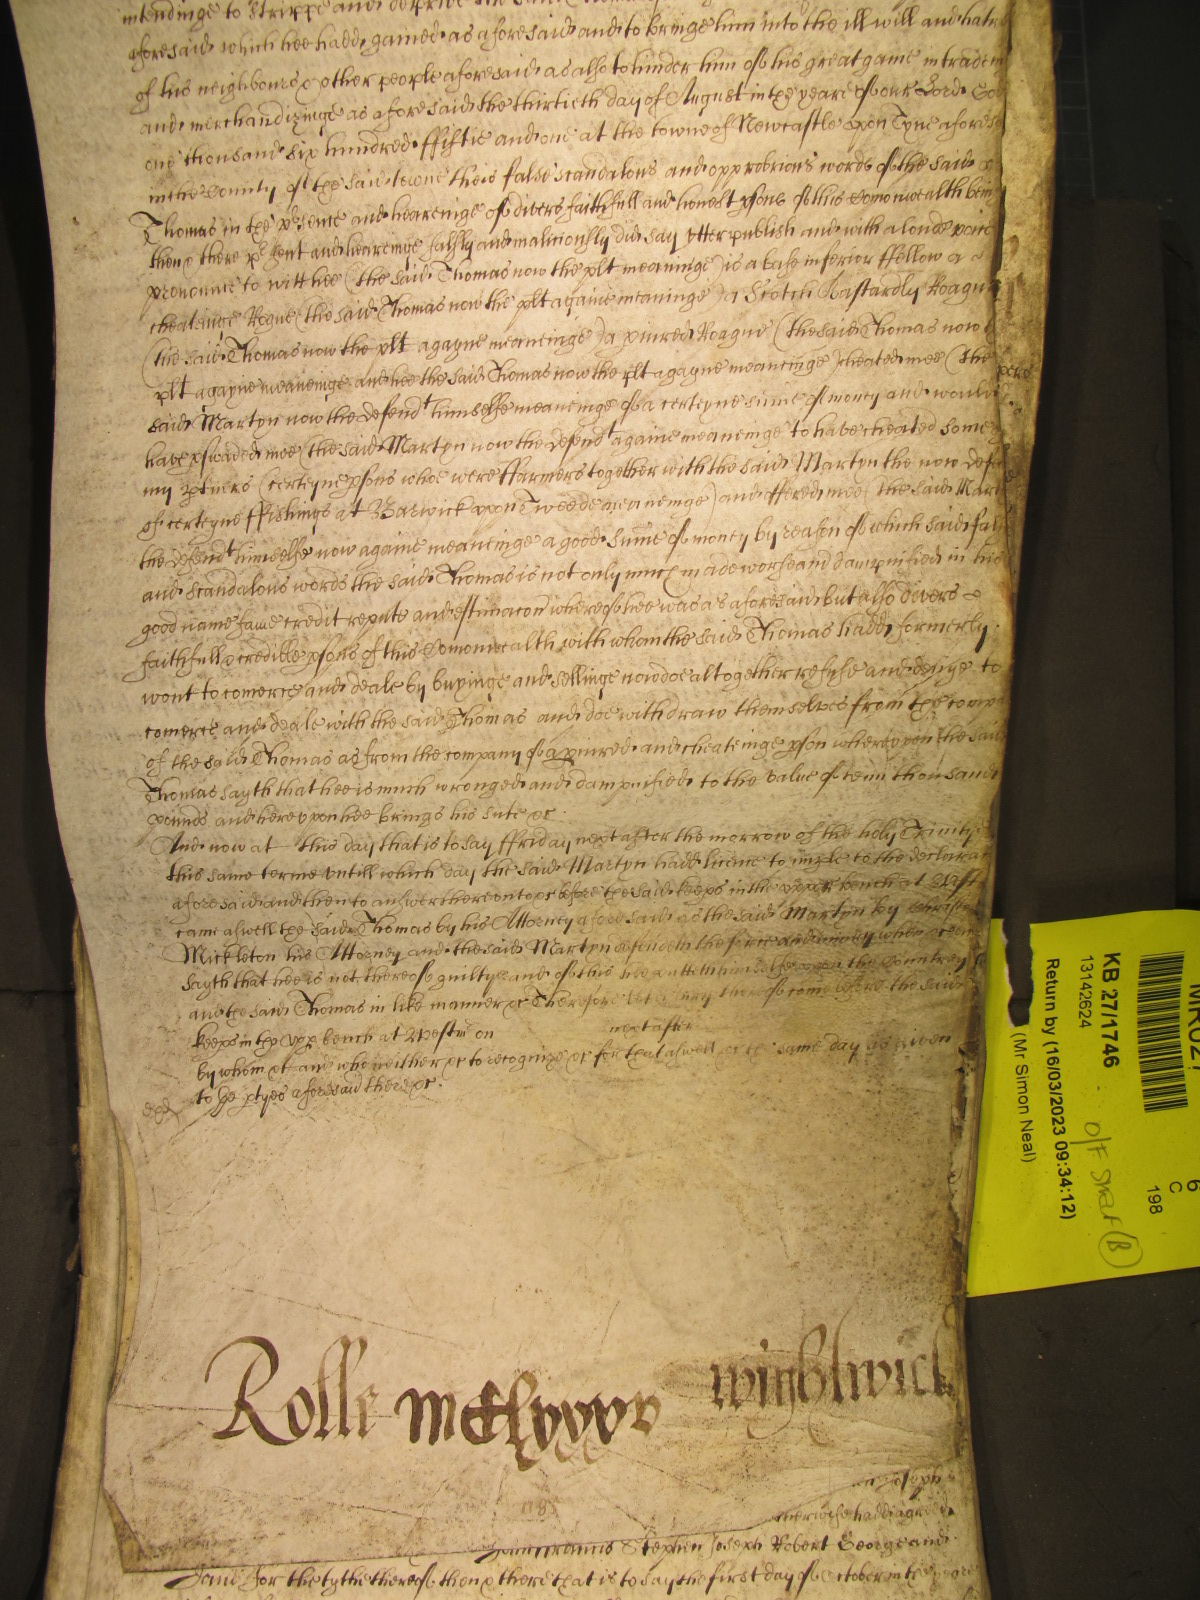 intendinge to Strippe and deprive the said Thomas
aforesaid which hee hadd gained as aforesaid and to bringe him into the ill will and hatre
of his neighboures & other people aforesaid as also to hinder him of his great gaine in tradein
and merchandizinge as aforesaid the thirtieth day of August in the yeare of our Lord God
one thousand six hundred ffiftie and one at the towne of Newcastle upon Tyne aforesd
in the County of the said towne theis false scandalous and opprobrious words of the said
Thomas in the psence and heareinge of divers faithfull and honest psons of this Comonwealth bein
then & there psent and heareinge falsly and maliciously did say utter publish and with a loude voice
pronounce to witt hee (the said Thomas now the plt meaninge) is a base inferior ffellow a
cheateinge Rogue (the said Thomas now the plt againe meaninge) a Scotch Bastardly Roague
(the said Thomas now the plt agayne meaneinge) a piured Roague (the said Thomas now
plt agayne meaneinge and hee the said Thomas now the plt agayne meaneinge) cheated mee (the
said Martyn now the defendt himselfe meaneinge of a certeyne sume of money and would
have pswaded mee (the said Martyn now the defendt againe meaneinge to have cheated some
my ptners (certeyne psons whoe were ffarmers together with the said Martyn the now defe
of certeyne ffishings at Barwick upon Tweede meaneinge) and offered mee (the said Mart
the defendt himselfe now againe meaneinge a good sume of money by reason of which said fal
and scandalous words the said Thomas is not only much made worse and dampnified in his
good name fame credit repute and estimacon whereof hee was as aforesaid but also divers
faithfull & credible psons of this Comonwealth with whom the said Thomas hadd formerly
wont to comerce and deale by buyinge and sellinge now doe altogether refuse and denye to
comerce and deale with the said Thomas and doe withdraw themselves from the compa
of the said Thomas as from the company of a piured and cheateinge pson whereupon the said
Thomas sayth that hee is much wronged and dampnified to the value of tenn thousand
pounds and hereupon hee brings his sute &c
And now at this day that is to say ffriday next after the morrow of the holy Trinity
this same terme untill which day the said Martyn hadd licence to imple to the declarac
aforesaid and then to answere thereunto &c before the said keeps in the upper bench at Westm
came aswell the said Thomas by his Attorney aforesaid as the said Martyn by
Mickleton his Attorney and the said Martyn defendeth the force and iniury when &c and
sayth that hee is not thereof guiltye and of this hee putteth himselfe upon the Countrey
and the said Thomas in like manner &c Therefore let a iury thereof come before the said
keeps in the upp bench at Westm on next after
by whom &c and who neither &c to recognize &c for that aswell &c the same day is given
to the ptyes aforesaid there &c
Rolle mClxxxv wightwick
1185
Joseph
otherwise hadd agreed
Francis Stephen Joseph Robert George and
Jane for the tythe thereof then & there that is to say the first day of October in the yeare
KB 27/1746
13142624
Return by (16/03/2023 09:34:12)
(Mr Simon Neal)
C
198